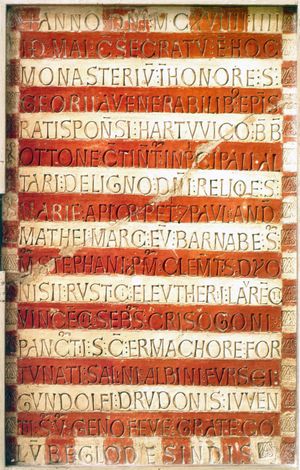 +ANNO·DNI·M·C·XVIIII·IIII
ID·MAI·CSECRATV·E·HOC
MONASTERIV·I·HONORE·S·
GEORII·A·VENERABILIB·EPIS
RATISPONSI·HARTVVICO·BB
OTTONE·CTINT·IN·PCIPALI·AL
TARI·DE·LIGNO·DNI·RELIQE·S·
MARIE·APLOR·PET·7·PAVL·AND
MATHEI·MARC·EV·BARNABE·S·
M·STEPHANI·PM·CLEMTIS·DYO
NISII·RVSTC·ELEVTHERII·LAVREC
VINCEC·SEB·CRISOGONI
PANCTII·SC·ERMACHORE·FOR
TVNATI·SALINI·ALBINI·FVRSEI·
GVNDOLFI·DRVDONIS·IVVEN
TII·S·GENOFEVE·GRATE·CO
LVBE·GLODESINDIS